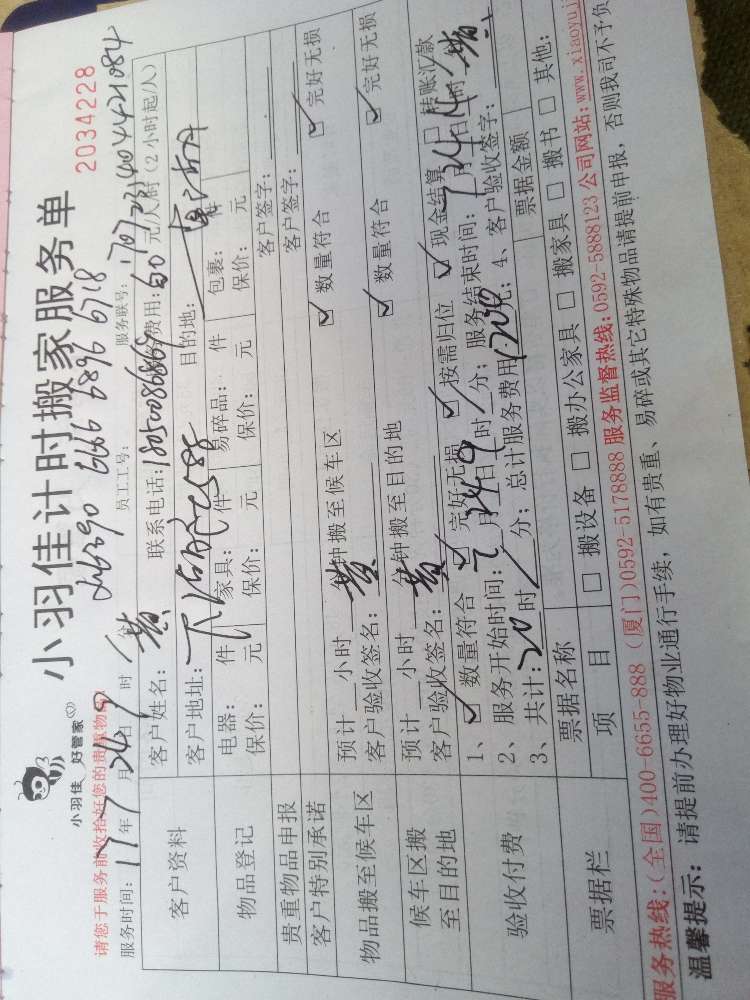 小羽佳 好管家
小羽佳计时搬家服务单
2034228
请您于服务前收拾好您的贵重物品
6390 6666 6896 6718
服务时间：17年7月24日9时 分 员工工号： 服务联号：
客户资料
客户姓名：黄 联系电话：18050086868 费用：60元/人/时（2小时起/人）
客户地址： 目的地：
物品登记
电器： 件 家具： 件 易碎品： 件 包裹： 件
保价： 元 保价： 元 保价： 元 保价： 元
贵重物品申报 客户签字：
客户特别承诺 客户签字：
物品搬至候车区
预计 小时 分钟搬至候车区 ☑ 数量符合 ☑ 完好无损
客户验收签名：黄
候车区搬至目的地
预计 小时 分钟搬至目的地 ☑ 数量符合 ☑ 完好无损
客户验收签名：黄
验收付费
1、☑ 数量符合 ☑ 完好无损 ☑ 按需归位 ☑ 现金结算 □ 转账汇款
2、服务开始时间：7月24日9时/分；服务结束时间：7月24日14时/分
3、共计：20时/分；总计服务费用1200元；4、客户验收签字：黄
票据栏
票据名称 票据金额
项目 □ 搬设备 □ 搬办公家具 □ 搬家具 □ 搬书 □ 其他：
服务热线：(全国)400-6655-888 (厦门)0592-5178888 服务监督热线：0592-5888123 公司网站：www.xiaoyuj
温馨提示： 请提前办理好物业通行手续，如有贵重、易碎或其它特殊物品请提前申报，否则我司不予负